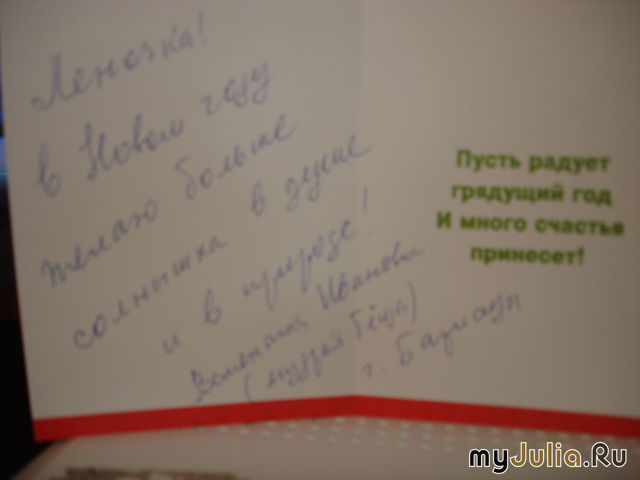 Леночка!
в Новом году
желаю больше
солнышка в душе
и в природе!
Валентина Иванова
(мудрая Тёща)
г. Барнаул
Пусть радует
грядущий год
И много счастья
принесет!
myJulia.Ru